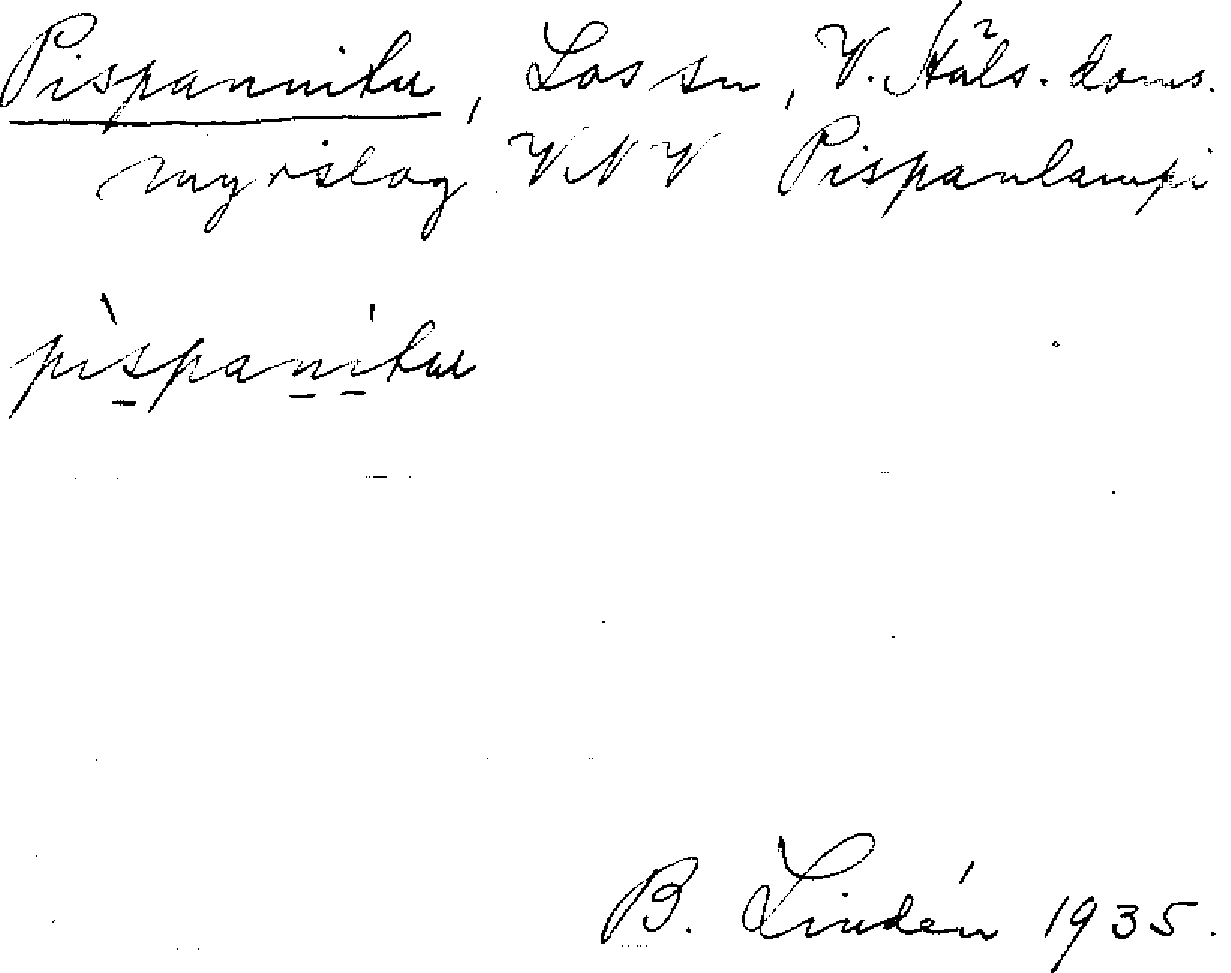 Pispannitu, Los sn, V. Häls. doms.
myrslog VNV Pispanlampi
pìspanitu
B. Lindén 1935.